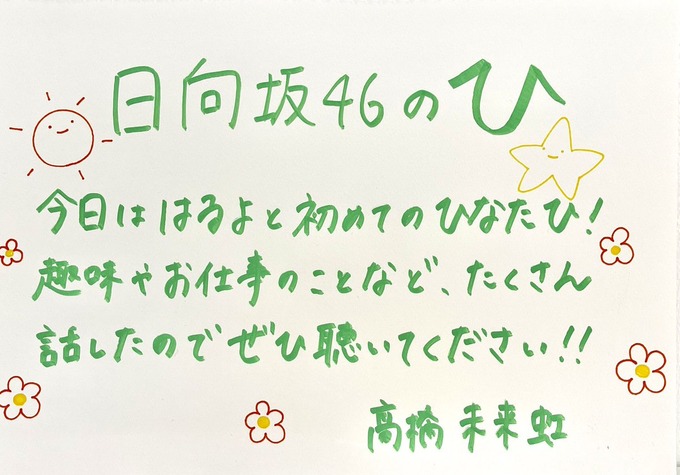 日向坂46のひ
今日ははるよと初めてのひなたひ!
趣味やお仕事のことなど、たくさん
話したのでぜひ聴いてください!!
高橋未来虹